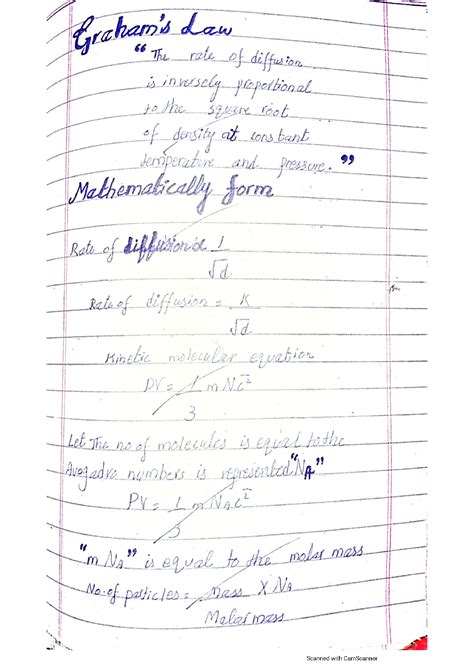 Graham's Law
"The rate of diffusion
is inversely proportional
to the square root
of density at constant
temperature and pressure."
Mathematically form
Rate of diffusion α 1
√d
Rate of diffusion = K
√d
Kinetic molecular equation
PV = 1 m N c̄²
3
Let The no of molecules is equal to the
Avogadro numbers is represented "NA"
PV = 1 m NA c̄²
3
"m NA" is equal to the molar mass
No. of particles = Mass X NA
Molar mass
Scanned with CamScanner